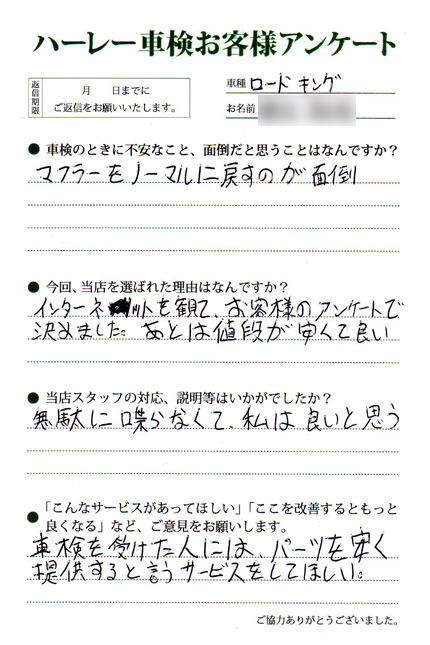 ハーレー車検お客様アンケート
返信期限
月　日までに
ご返信をお願いいたします。
車種 ロードキング
お名前
● 車検のときに不安なこと、面倒だと思うことはなんですか？
マフラーをノーマルに戻すのが面倒
● 今回、当店を選ばれた理由はなんですか？
インターネットを観て、お客様のアンケートで
決めました。あとは値段が安くて良い
● 当店スタッフの対応、説明等はいかがでしたか？
無駄に喋らなくて、私は良いと思う
● 「こんなサービスがあってほしい」「ここを改善するともっと
良くなる」など、ご意見をお願いします。
車検を受けた人には、パーツを安く
提供すると言うサービスをしてほしい。
ご協力ありがとうございました。